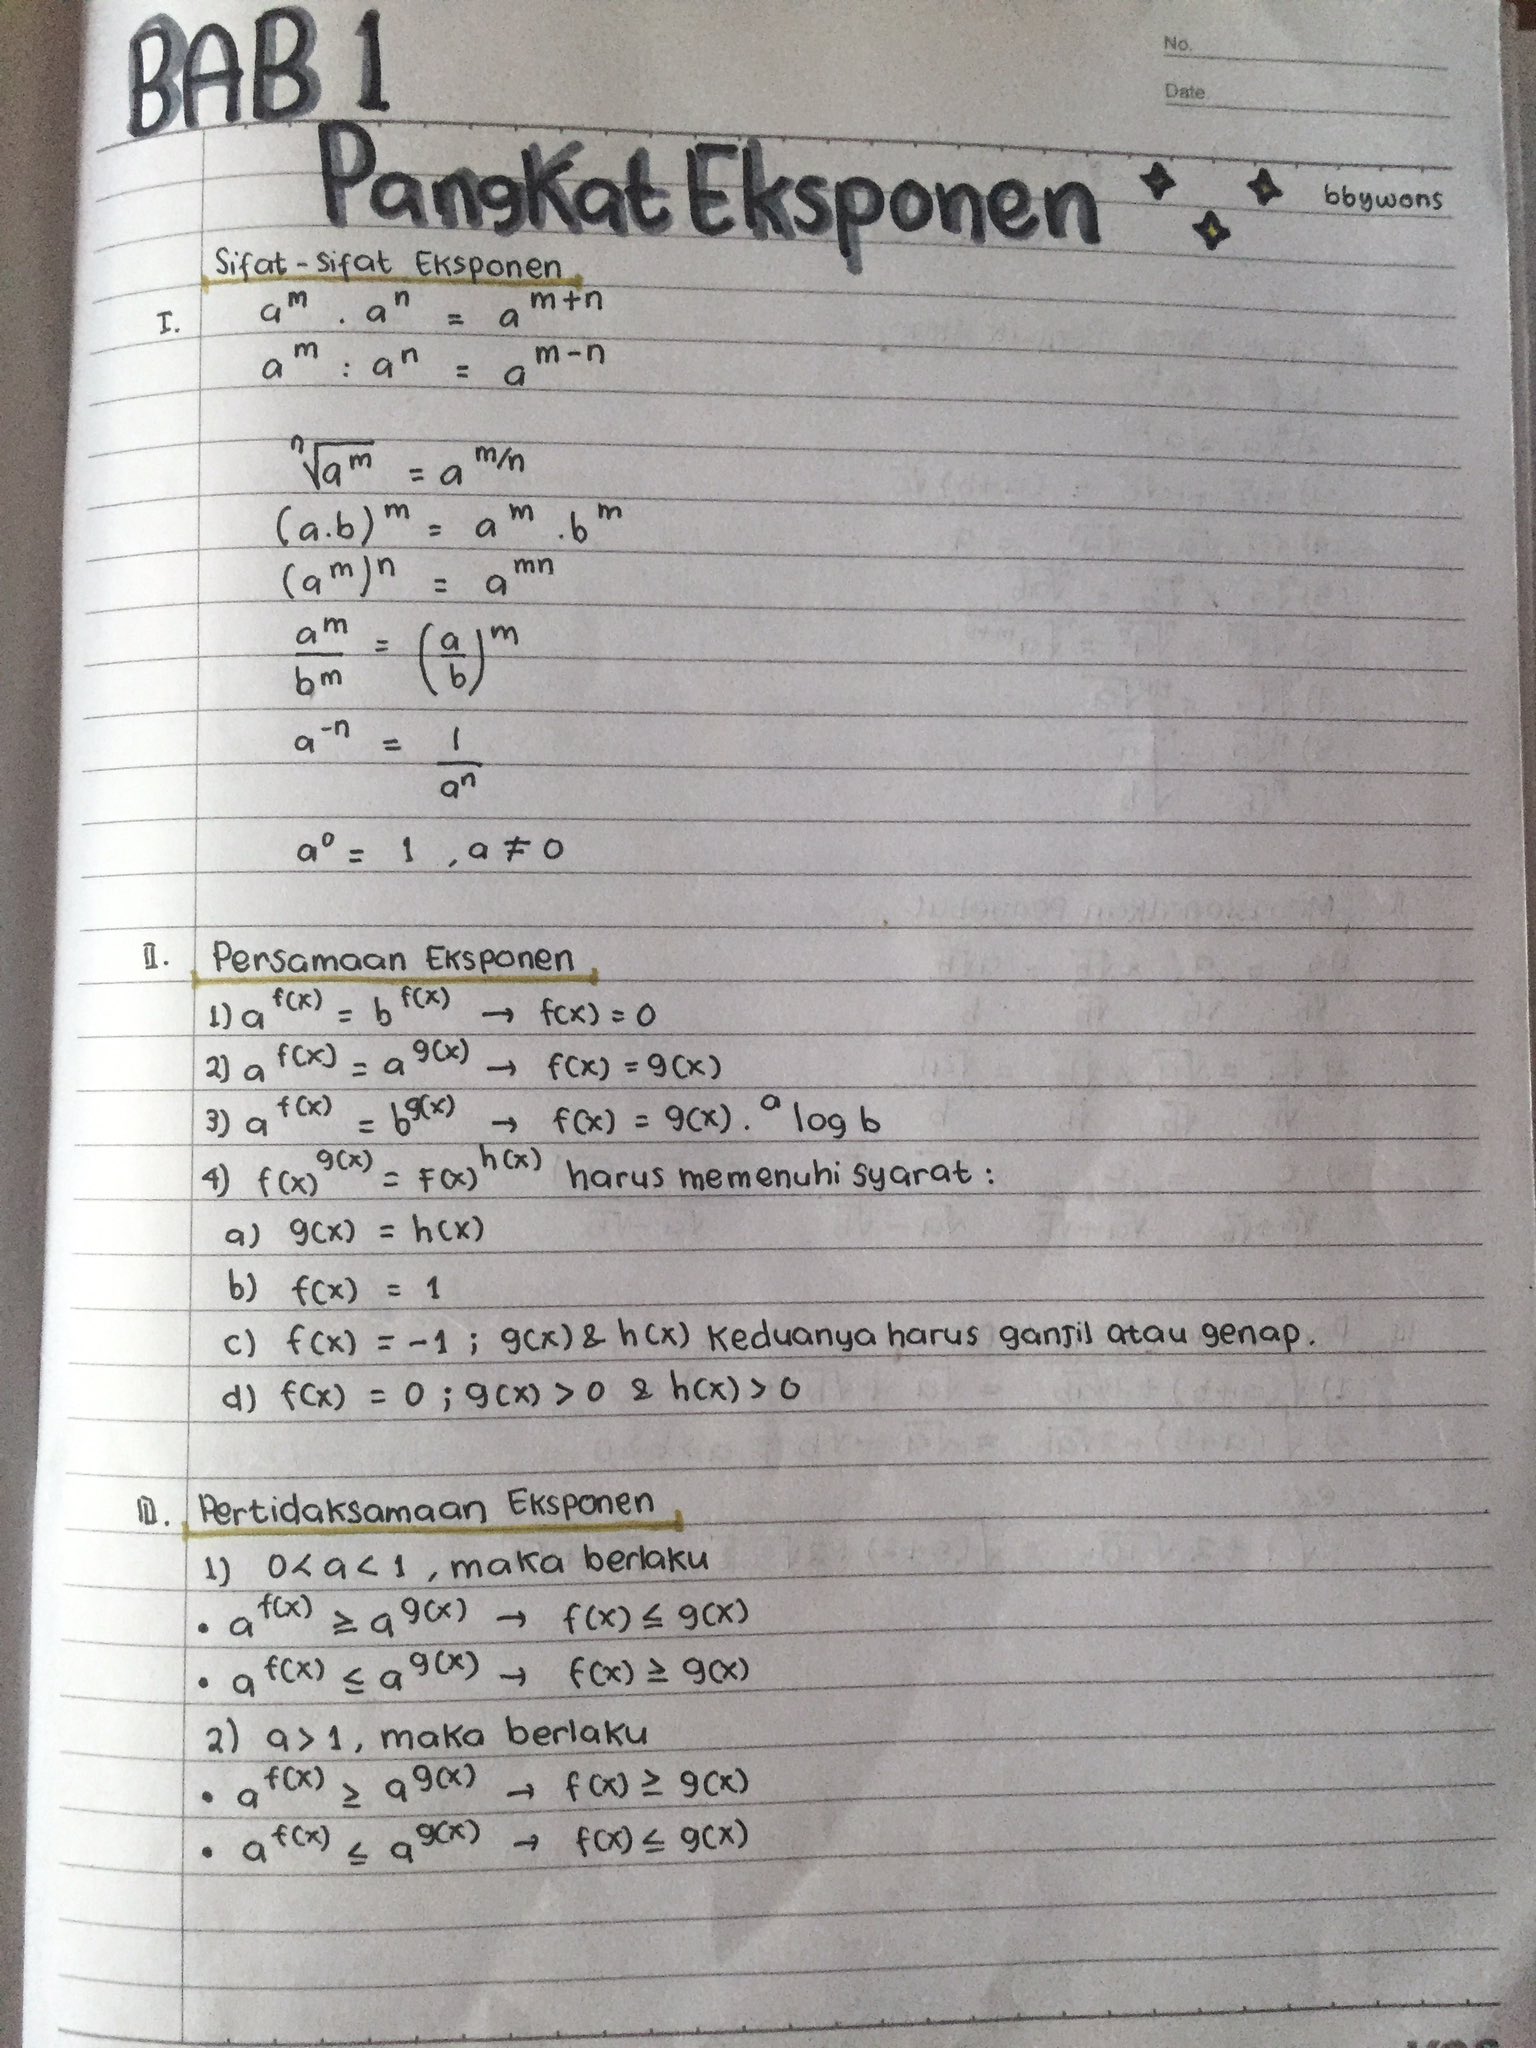 BAB 1
No.
Date
Pangkat Eksponen
bbywons
Sifat-sifat Eksponen
I. a^m . a^n = a^(m+n)
a^m : a^n = a^(m-n)
ⁿ√(a^m) = a^(m/n)
(a.b)^m = a^m . b^m
(a^m)^n = a^(mn)
a^m/b^m = (a/b)^m
a^(-n) = 1/a^n
a^0 = 1 , a ≠ 0
II. Persamaan Eksponen
1) a^f(x) = b^f(x) → f(x) = 0
2) a^f(x) = a^g(x) → f(x) = g(x)
3) a^f(x) = b^g(x) → f(x) = g(x) . ᵃlog b
4) f(x)^g(x) = F(x)^h(x) harus memenuhi syarat :
a) g(x) = h(x)
b) f(x) = 1
c) f(x) = -1 ; g(x) & h(x) keduanya harus ganjil atau genap.
d) f(x) = 0 ; g(x) > 0 & h(x) > 0
II. Pertidaksamaan Eksponen
1) 0 < a < 1 , maka berlaku
• a^f(x) ≥ a^g(x) → f(x) ≤ g(x)
• a^f(x) ≤ a^g(x) → f(x) ≥ g(x)
2) a > 1, maka berlaku
• a^f(x) ≥ a^g(x) → f(x) ≥ g(x)
• a^f(x) ≤ a^g(x) → f(x) ≤ g(x)